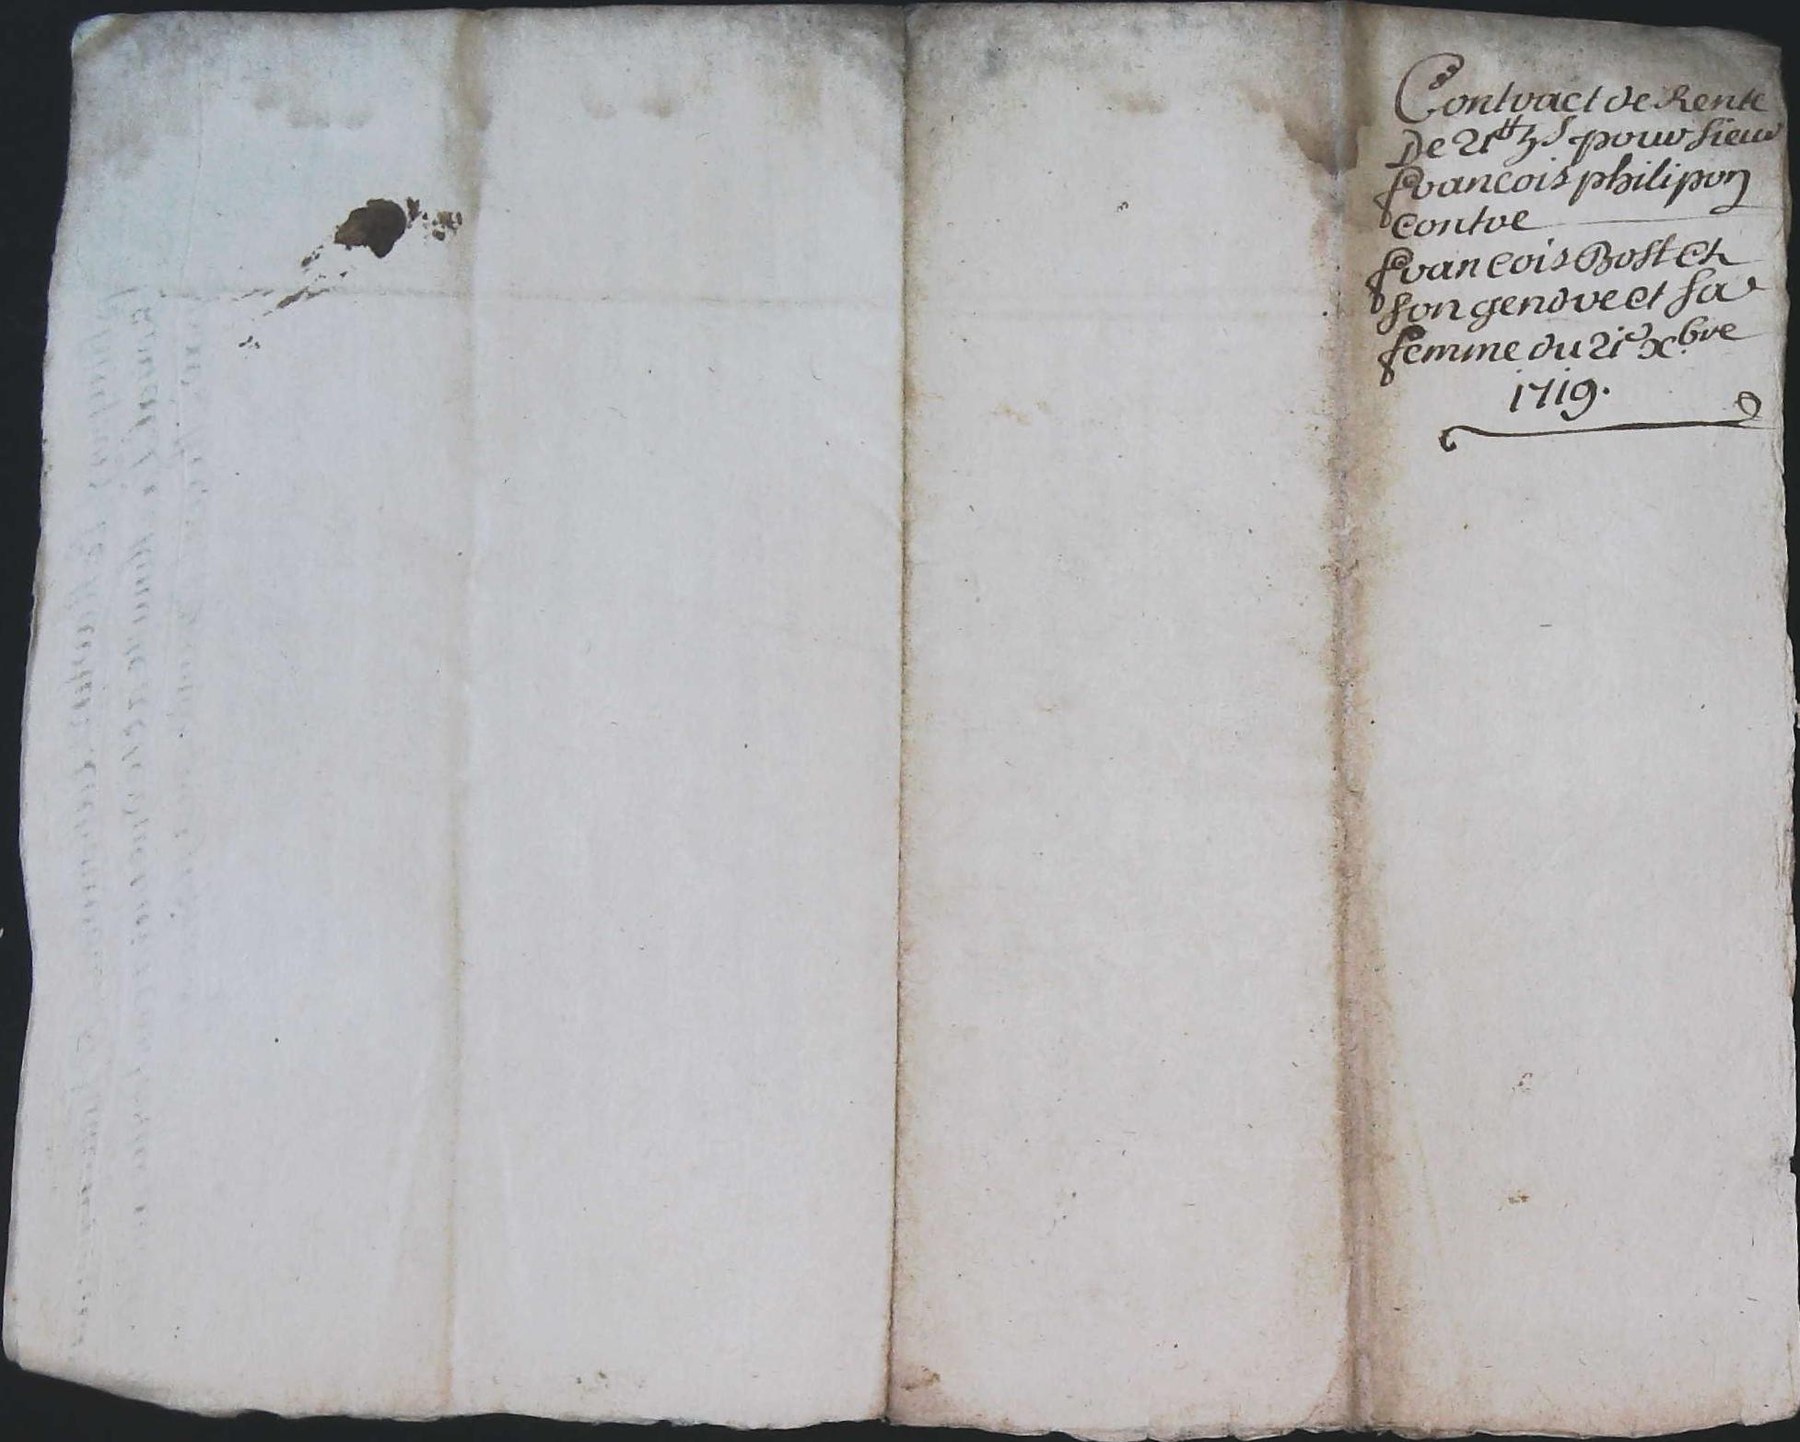 Contract de Rente
De 21tt 3s pour sieur
francois philipon
contre
francois Bost et
son gendre et sa
femme du 21e xbre
1719.